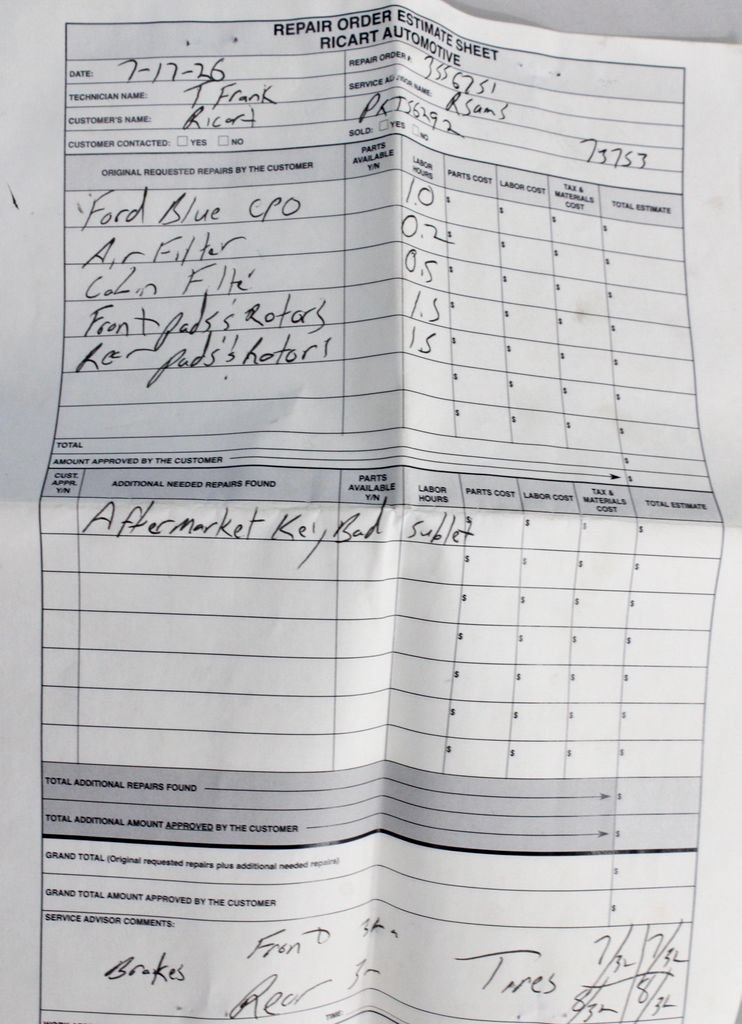 REPAIR ORDER ESTIMATE SHEET
RICART AUTOMOTIVE
DATE: 7-17-26
REPAIR ORDER #: 3556751
TECHNICIAN NAME: T Frank
SERVICE ADVISOR NAME: RSams
CUSTOMER'S NAME: Ricart
PKT56292
CUSTOMER CONTACTED: YES NO
SOLD: YES NO
73753
ORIGINAL REQUESTED REPAIRS BY THE CUSTOMER PARTS AVAILABLE Y/N LABOR HOURS PARTS COST LABOR COST TAX & MATERIALS COST TOTAL ESTIMATE
Ford Blue CPO 1.0 $ $ $ $
Air Filter 0.2 $ $ $ $
Cabin Filte 0.5 $ $ $ $
Front pads's Rotors 1.5 $ $ $ $
Rear pads's Rotors 1.5 $ $ $ $
$ $ $ $
$ $ $ $
TOTAL $
AMOUNT APPROVED BY THE CUSTOMER $
CUST. APPR. Y/N ADDITIONAL NEEDED REPAIRS FOUND PARTS AVAILABLE Y/N LABOR HOURS PARTS COST LABOR COST TAX & MATERIALS COST TOTAL ESTIMATE
Aftermarket Key, Bad sublet $ $ $ $
$ $ $ $
$ $ $ $
$ $ $ $
$ $ $ $
$ $ $ $
$ $ $ $
TOTAL ADDITIONAL REPAIRS FOUND $
TOTAL ADDITIONAL AMOUNT APPROVED BY THE CUSTOMER $
GRAND TOTAL (Original requested repairs plus additional needed repairs) $
GRAND TOTAL AMOUNT APPROVED BY THE CUSTOMER $
SERVICE ADVISOR COMMENTS:
Brakes Front Tires 7/32 7/32
Rear 8/32 8/32
TIME: